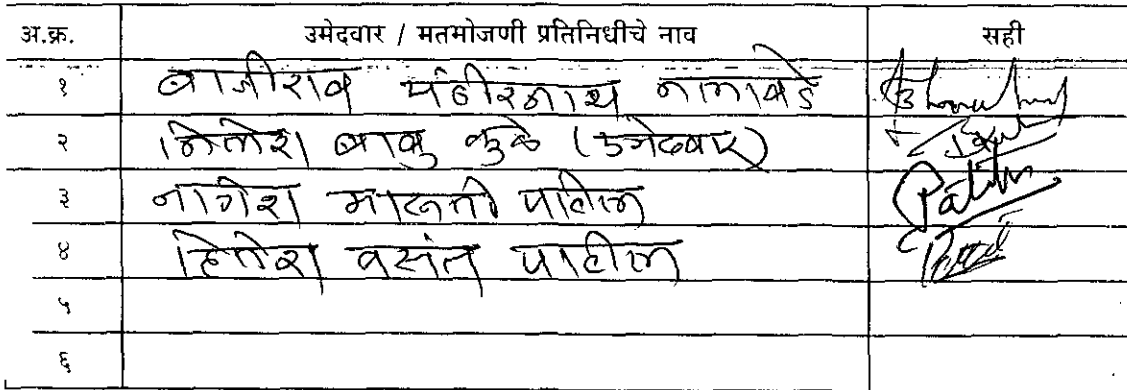 अ.क्र. उमेदवार / मतमोजणी प्रतिनिधीचे नाव सही
१ बाजीराव पंढीरनाथ नलावडे
२ नितेश बाबु कुळे (उमेदवार)
३ नागेश मारुती पाटील Patil
४ हितेश वसंत पाटील
५
६